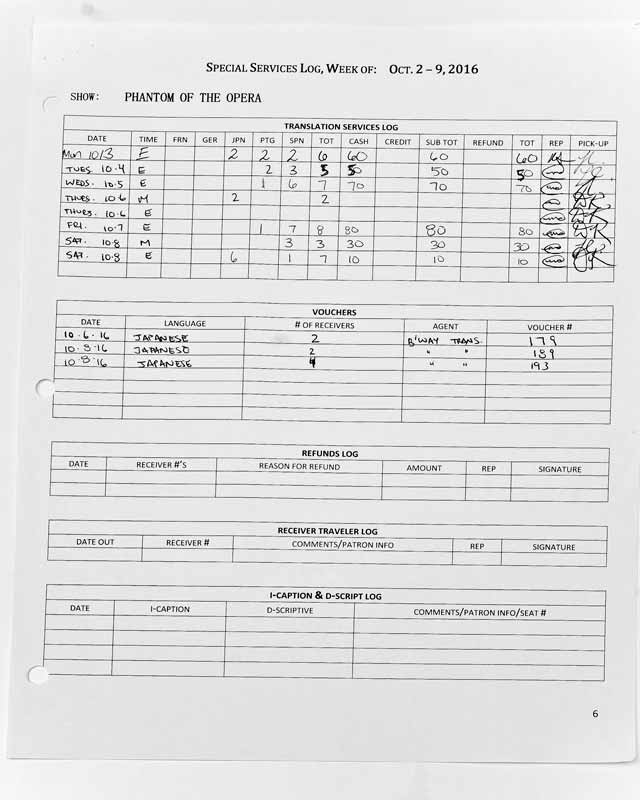 SPECIAL SERVICES LOG, WEEK OF: OCT. 2 – 9, 2016
SHOW: PHANTOM OF THE OPERA
TRANSLATION SERVICES LOG
DATE TIME FRN GER JPN PTG SPN TOT CASH CREDIT SUB TOT REFUND TOT REP PICK-UP
Mon 10/3 E 2 2 2 6 60 60 60
TUES. 10.4 E 2 3 5 50 50 50
WEDS. 10.5 E 1 6 7 70 70 70
THURS. 10.6 M 2 2
THURS. 10.6 E
FRI. 10.7 E 1 7 8 80 80 80
SAT. 10.8 M 3 3 30 30 30
SAT. 10.8 E 6 1 7 10 10 10
VOUCHERS
DATE LANGUAGE # OF RECEIVERS AGENT VOUCHER #
10.6.16 JAPANESE 2 B'WAY TRANS. 179
10.8.16 JAPANESE 2 " " 189
10.8.16 JAPANESE 4 " " 193
REFUNDS LOG
DATE RECEIVER #'S REASON FOR REFUND AMOUNT REP SIGNATURE
RECEIVER TRAVELER LOG
DATE OUT RECEIVER # COMMENTS/PATRON INFO REP SIGNATURE
I-CAPTION & D-SCRIPT LOG
DATE I-CAPTION D-SCRIPTIVE COMMENTS/PATRON INFO/SEAT #
6